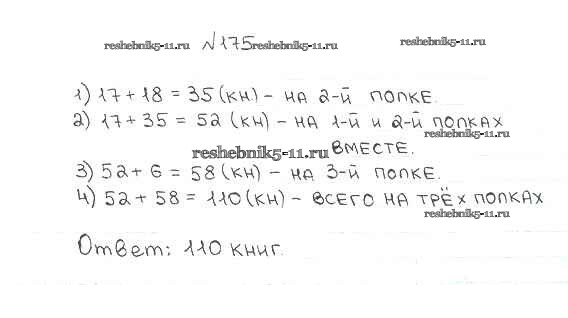 reshebnik5-11.ru №175 reshebnik5-11.ru reshebnik5-11.ru
1) 17 + 18 = 35 (кн) - на 2-й полке.
2) 17 + 35 = 52 (кн) - на 1-й и 2-й полках
reshebnik5-11.ru
reshebnik5-11.ru вместе.
3) 52 + 6 = 58 (кн) - на 3-й полке.
4) 52 + 58 = 110 (кн) - всего на трёх полках
reshebnik5-11.ru
Ответ: 110 книг.